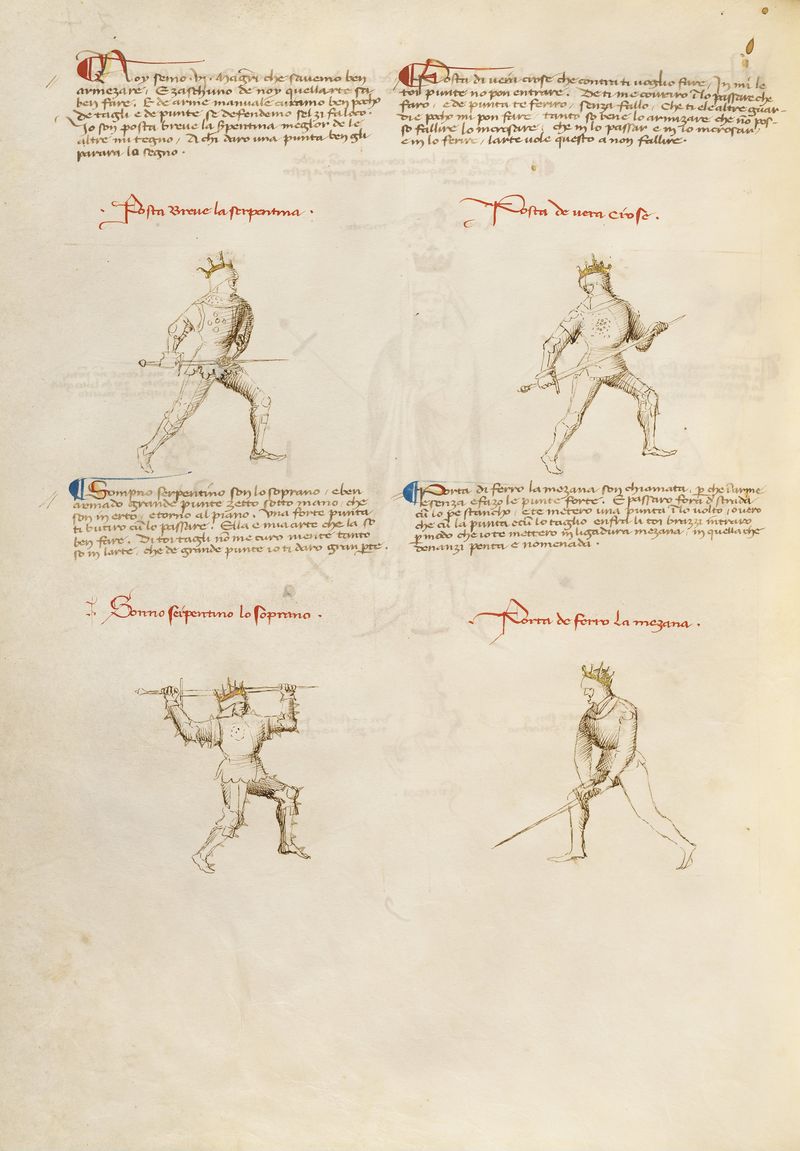 Noy semo .vi. Magistri che savemo ben
armezare, E zaschuno de noy quellarte sa
ben fare. E de arme manuale curamo ben pocho
de tagli e de punte se defendemo sel zi fa loco.
Io son posta breve la serpentina meglor de le
altre mi tegno, A chi daro una punta ben gli
parara lo segno.
Posta di vera crose che contra ti voglio fare, In mi le
toy punte no pon entrare. De ti me covriro in lo passare che
faro, e de punta te feriro, senza fallo, Che ti e le altre guar-
die pocho mi pon fare, tanto so bene lo armizare che no pos-
so fallire lo incrosare, che in lo passar e in lo incrosar,
e in lo ferire, larte vole questo a non fallire.
. Posta Breve la serpentina .
. Posta de vera Crose .
Sompno serpentino son lo soprano, e ben
armado grande punte zetto sotto mano, che
son in erto, e torno al piano. Una forte punta
ti butiro cum lo passare. Ella e mia arte che la so
ben fare. Di toi tagli no me curo niente tanto
so in larte, che de grande punte io ti daro gran parte.
Porta di ferro la mezana son chiamata, p che larme
e senza e fazo le punte forte. E passaro fora d strada
cu lo pe stancho, e te metero una punta in lo volto, overo
che cu la punta e cu lo taglio enfra li toi brazzi intraro
p modo che io te mettero in ligadura mezana, in quella che
denanzi penta e nomenada .
. Sonno serpentino lo soprano .
. Porta de ferro la mezana .